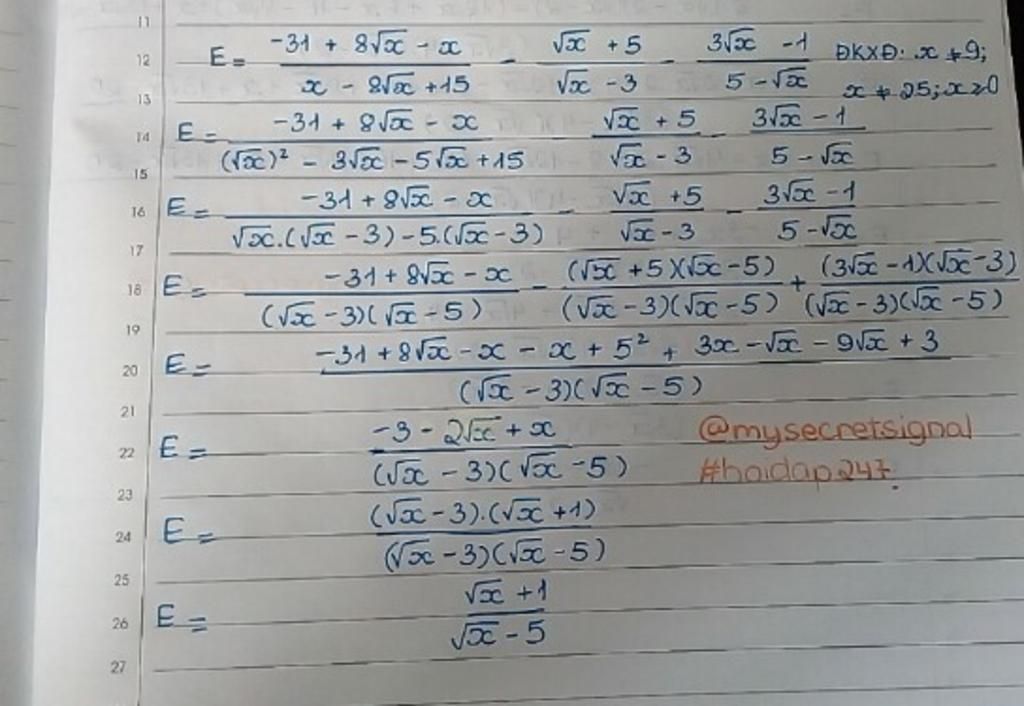 11
12 E = (-31 + 8√x - x)/(x - 8√x + 15) - (√x + 5)/(√x - 3) - (3√x - 1)/(5 - √x) ĐKXĐ: x ≠ 9;
13 x ≠ 25; x ≥ 0
14 E = (-31 + 8√x - x)/((√x)² - 3√x - 5√x + 15) - (√x + 5)/(√x - 3) - (3√x - 1)/(5 - √x)
15
16 E = (-31 + 8√x - x)/(√x.(√x - 3) - 5.(√x - 3)) - (√x + 5)/(√x - 3) - (3√x - 1)/(5 - √x)
17
18 E = (-31 + 8√x - x)/((√x - 3)(√x - 5)) - ((√x + 5)(√x - 5))/((√x - 3)(√x - 5)) + ((3√x - 1)(√x - 3))/((√x - 3)(√x - 5))
19
20 E = (-31 + 8√x - x - x + 5² + 3x - √x - 9√x + 3)/((√x - 3)(√x - 5))
21
22 E = (-3 - 2√x + x)/((√x - 3)(√x - 5)) @mysecretsignal
#hoidap247.
23
24 E = ((√x - 3).(√x + 1))/((√x - 3)(√x - 5))
25
26 E = (√x + 1)/(√x - 5)
27